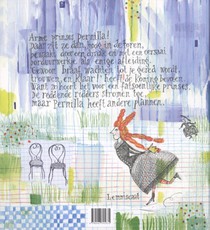 Arme prinses Pernilla!
Daar zit ze dan, hoog in de toren,
bewaakt door een draak en met een
borduurwerkje als enige afleiding.
Gewoon braaf wachten tot je gered wordt,
trouwen, en klaar! heeft de koning besloten.
Want zo hoort het voor een fatsoenlijke prinses.
De reddende ridders stromen toe,
maar Pernilla heeft andere plannen.
Lemniscaat